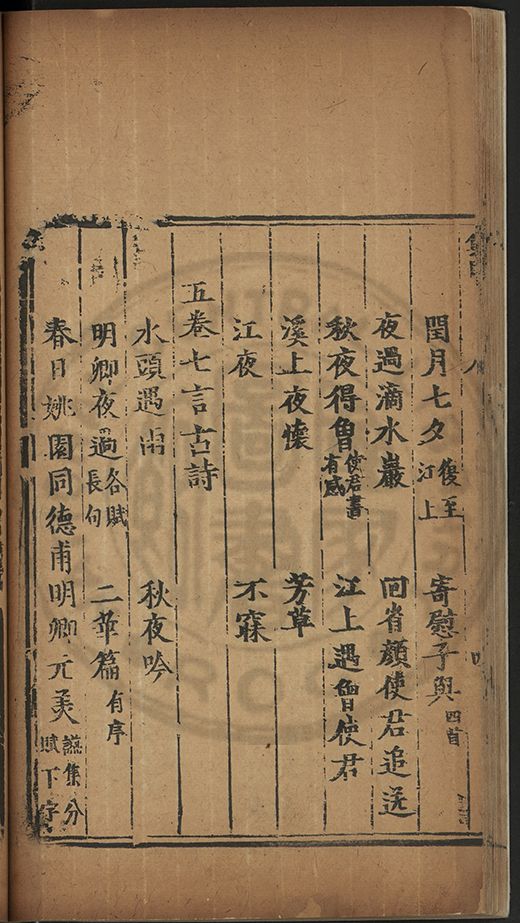 閏月七夕 復至江上 寄慰子與 四首
夜過滴水巖 回省顔使君追送
秋夜得魯使君書有感 江上遇魯使君
溪上夜懷 芳草
江夜 不寐
五卷七言古詩
水頭遇雨 秋夜吟
明卿夜過 各賦長句 二華篇 有序
春日姚園同德甫明卿元美 讌集分賦下字